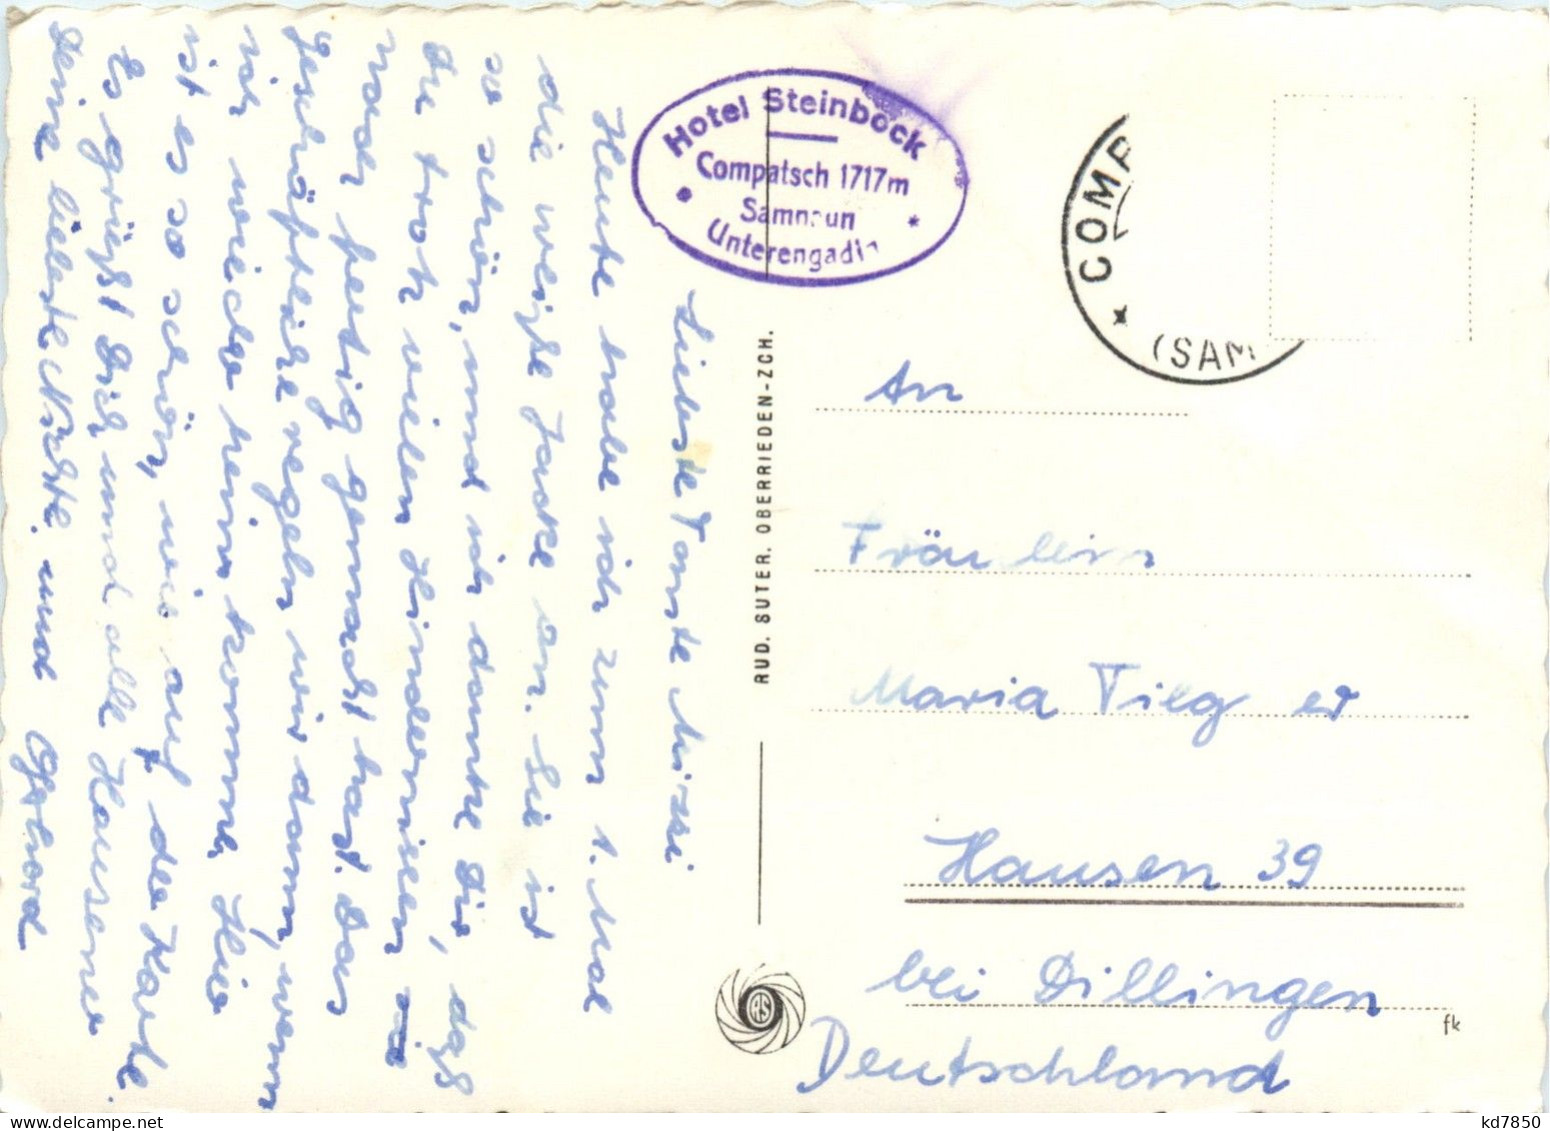 Liebste Tante Mirzi
Heute habe ich zum 1. Mal
die weiße Jacke an. Sie ist
so schön, und ich danke Dir, daß
Du trotz vielen Hindernissen sie
noch fertig gemacht hast. Das
Geschäftliche regeln wir dann, wenn
ich wieder heim komme. Hier
ist es so schön, wie auf der Karte.
Es grüßt Dich und alle Hausener
Deine liebste Nichte und Gerhard
Hotel Steinbock
Compatsch 1717m
Samnaun
Unterengadin
COMP
(SAM
RUD. SUTER. OBERRIEDEN-ZCH.
An
Fräulein
Maria
Hausen 39
bei Dillingen
Deutschland
fk
kd7850